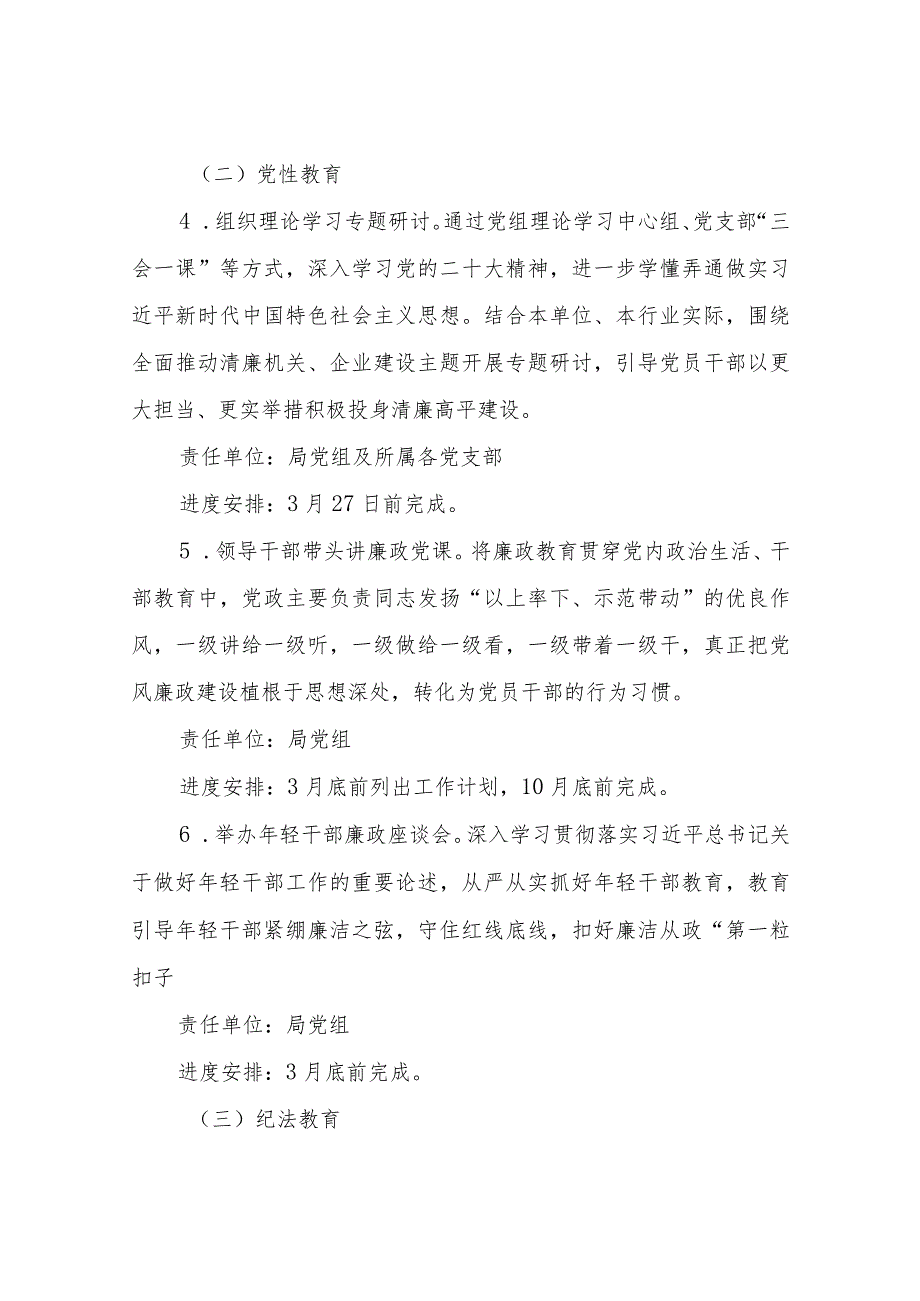 （二）党性教育
4 .组织理论学习专题研讨。通过党组理论学习中心组、党支部“三
会一课”等方式，深入学习党的二十大精神，进一步学懂弄通做实习
近平新时代中国特色社会主义思想。结合本单位、本行业实际，围绕
全面推动清廉机关、企业建设主题开展专题研讨，引导党员干部以更
大担当、更实举措积极投身清廉高平建设。
责任单位：局党组及所属各党支部
进度安排：3 月 27 日前完成。
5 .领导干部带头讲廉政党课。将廉政教育贯穿党内政治生活、干
部教育中，党政主要负责同志发扬“以上率下、示范带动”的优良作
风，一级讲给一级听，一级做给一级看，一级带着一级干，真正把党
风廉政建设植根于思想深处，转化为党员干部的行为习惯。
责任单位：局党组
进度安排：3 月底前列出工作计划，10 月底前完成。
6 .举办年轻干部廉政座谈会。深入学习贯彻落实习近平总书记关
于做好年轻干部工作的重要论述，从严从实抓好年轻干部教育，教育
引导年轻干部紧绷廉洁之弦，守住红线底线，扣好廉洁从政“第一粒
扣子
责任单位：局党组
进度安排：3 月底前完成。
（三）纪法教育